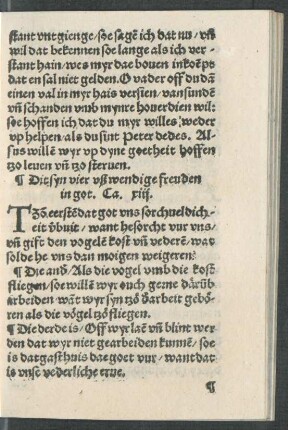 stant vntgienge/soe sagē ich dat nu/ vñ
wil dat bekennen soe lange als ich ver-
stant hain/wes myr dae bouen inkoēpt
dat en sal niet gelden. O vader off du dā
einen val in myr hais versien/van sünde
vñ schanden vmb mynre houerdien wil:
soe hoffen ich dat du myr willes weder
vp helpen/als du sint Peter dedes. Al-
sus willē wyr vp dyne goetheit hoffen
tzo leuen vñ tzo steruen.
¶ Dit syn vier vßwendige freuden
in got. Ca. xiij.
TZō eerstē dat got vns sorchueldich-
eit v̓buit/want he sorcht vur vns/
vñ gift den vogelē kost vñ vederē/ war
solde he vns dan moigen weigeren?
¶ Die and̓/ Als die vogel vmb die kost
fliegen/soe willē wyr ouch gerne darūb
arbeiden/ wāt wyr syn tzo d̓ arbeit gebō-
ren als die vögel tzo fliegen.
¶ Die derde is/ Off wyr laē vñ blint wer
den dat wyr niet gearbeiden kunnē/ soe
is dat gasthuis dae goet vur/ want dat
is vnse vederliche erue.
¶